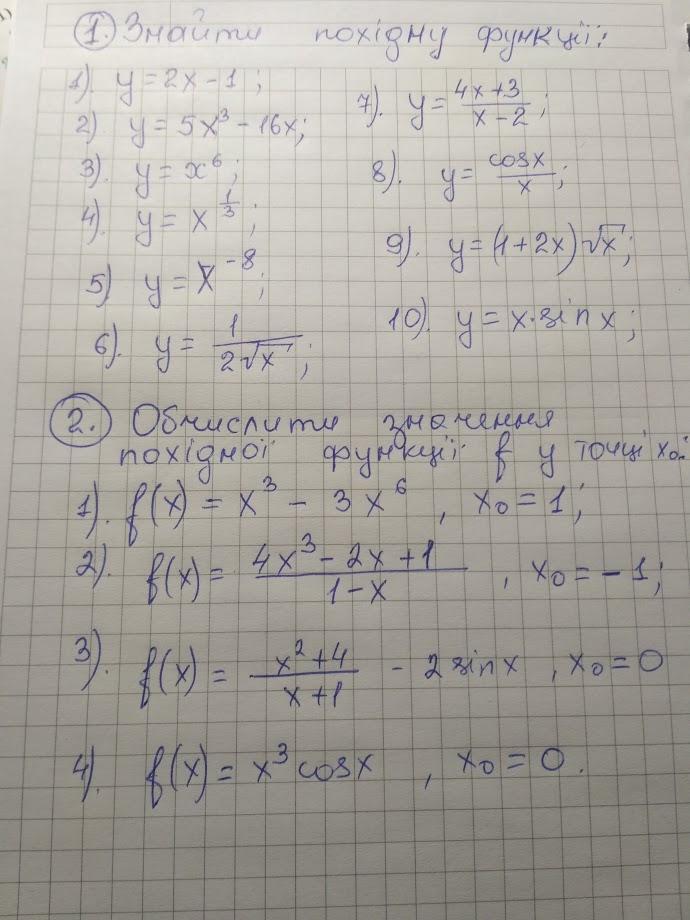 1. Знайти похідну функції:
1). y = 2x - 1;
2). y = 5x³ - 16x;
3). y = x⁶;
4). y = x^(1/3);
5) y = x⁻⁸;
6). y = 1/(2√x);
7). y = (4x+3)/(x-2);
8). y = cosx/x;
9). y = (1+2x)√x;
10). y = x·sin x;
2. Обчислити значення
похідної функції f у точці x₀:
1). f(x) = x³ - 3x⁶, x₀ = 1;
2). f(x) = (4x³ - 2x + 1)/(1-x), x₀ = -1;
3). f(x) = (x²+4)/(x+1) - 2 sin x, x₀ = 0
4). f(x) = x³ cosx, x₀ = 0.